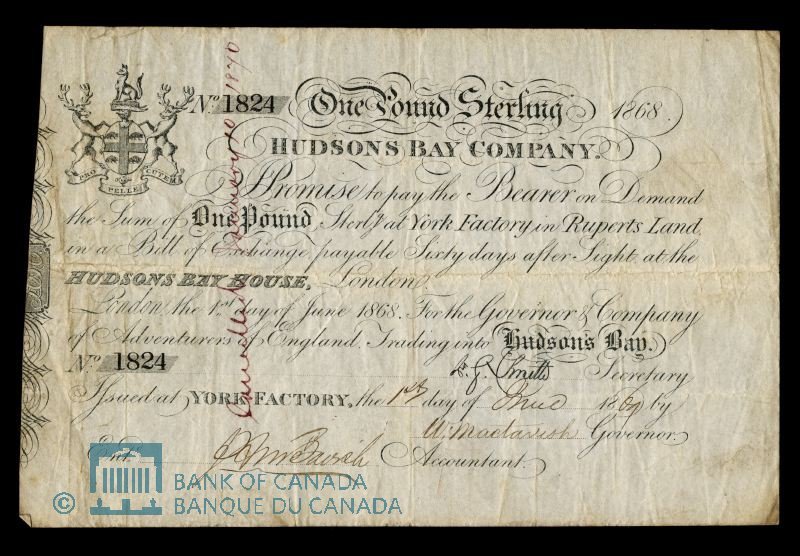 No. 1824 One Pound Sterling 1868
HUDSONS BAY COMPANY.
PRO PELLE CUTEM
I Promise to pay the Bearer on Demand
the Sum of One Pound Sterlg. at York Factory in Ruperts Land
in a Bill of Exchange payable Sixty days after Sight at the
HUDSONS BAY HOUSE, London.
London the 1st day of June 1868. For the Governor & Company
of Adventurers of England. Trading into Hudson's Bay.
No. 1824
Smith Secretary
Issued at YORK FACTORY, the 1st day of 18 by
Mactavish Governor.
Entd. Accountant.
Cancelled 10 1870
© BANK OF CANADA
BANQUE DU CANADA